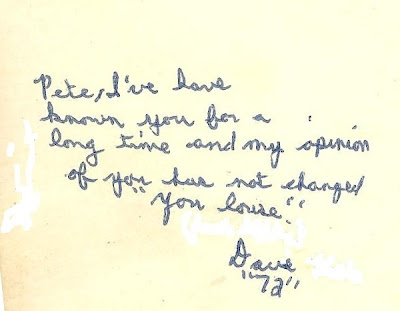 Pete, I've have
known you for a
long time and my opinion
of you has not changed
"You louse."
Dave
"72"